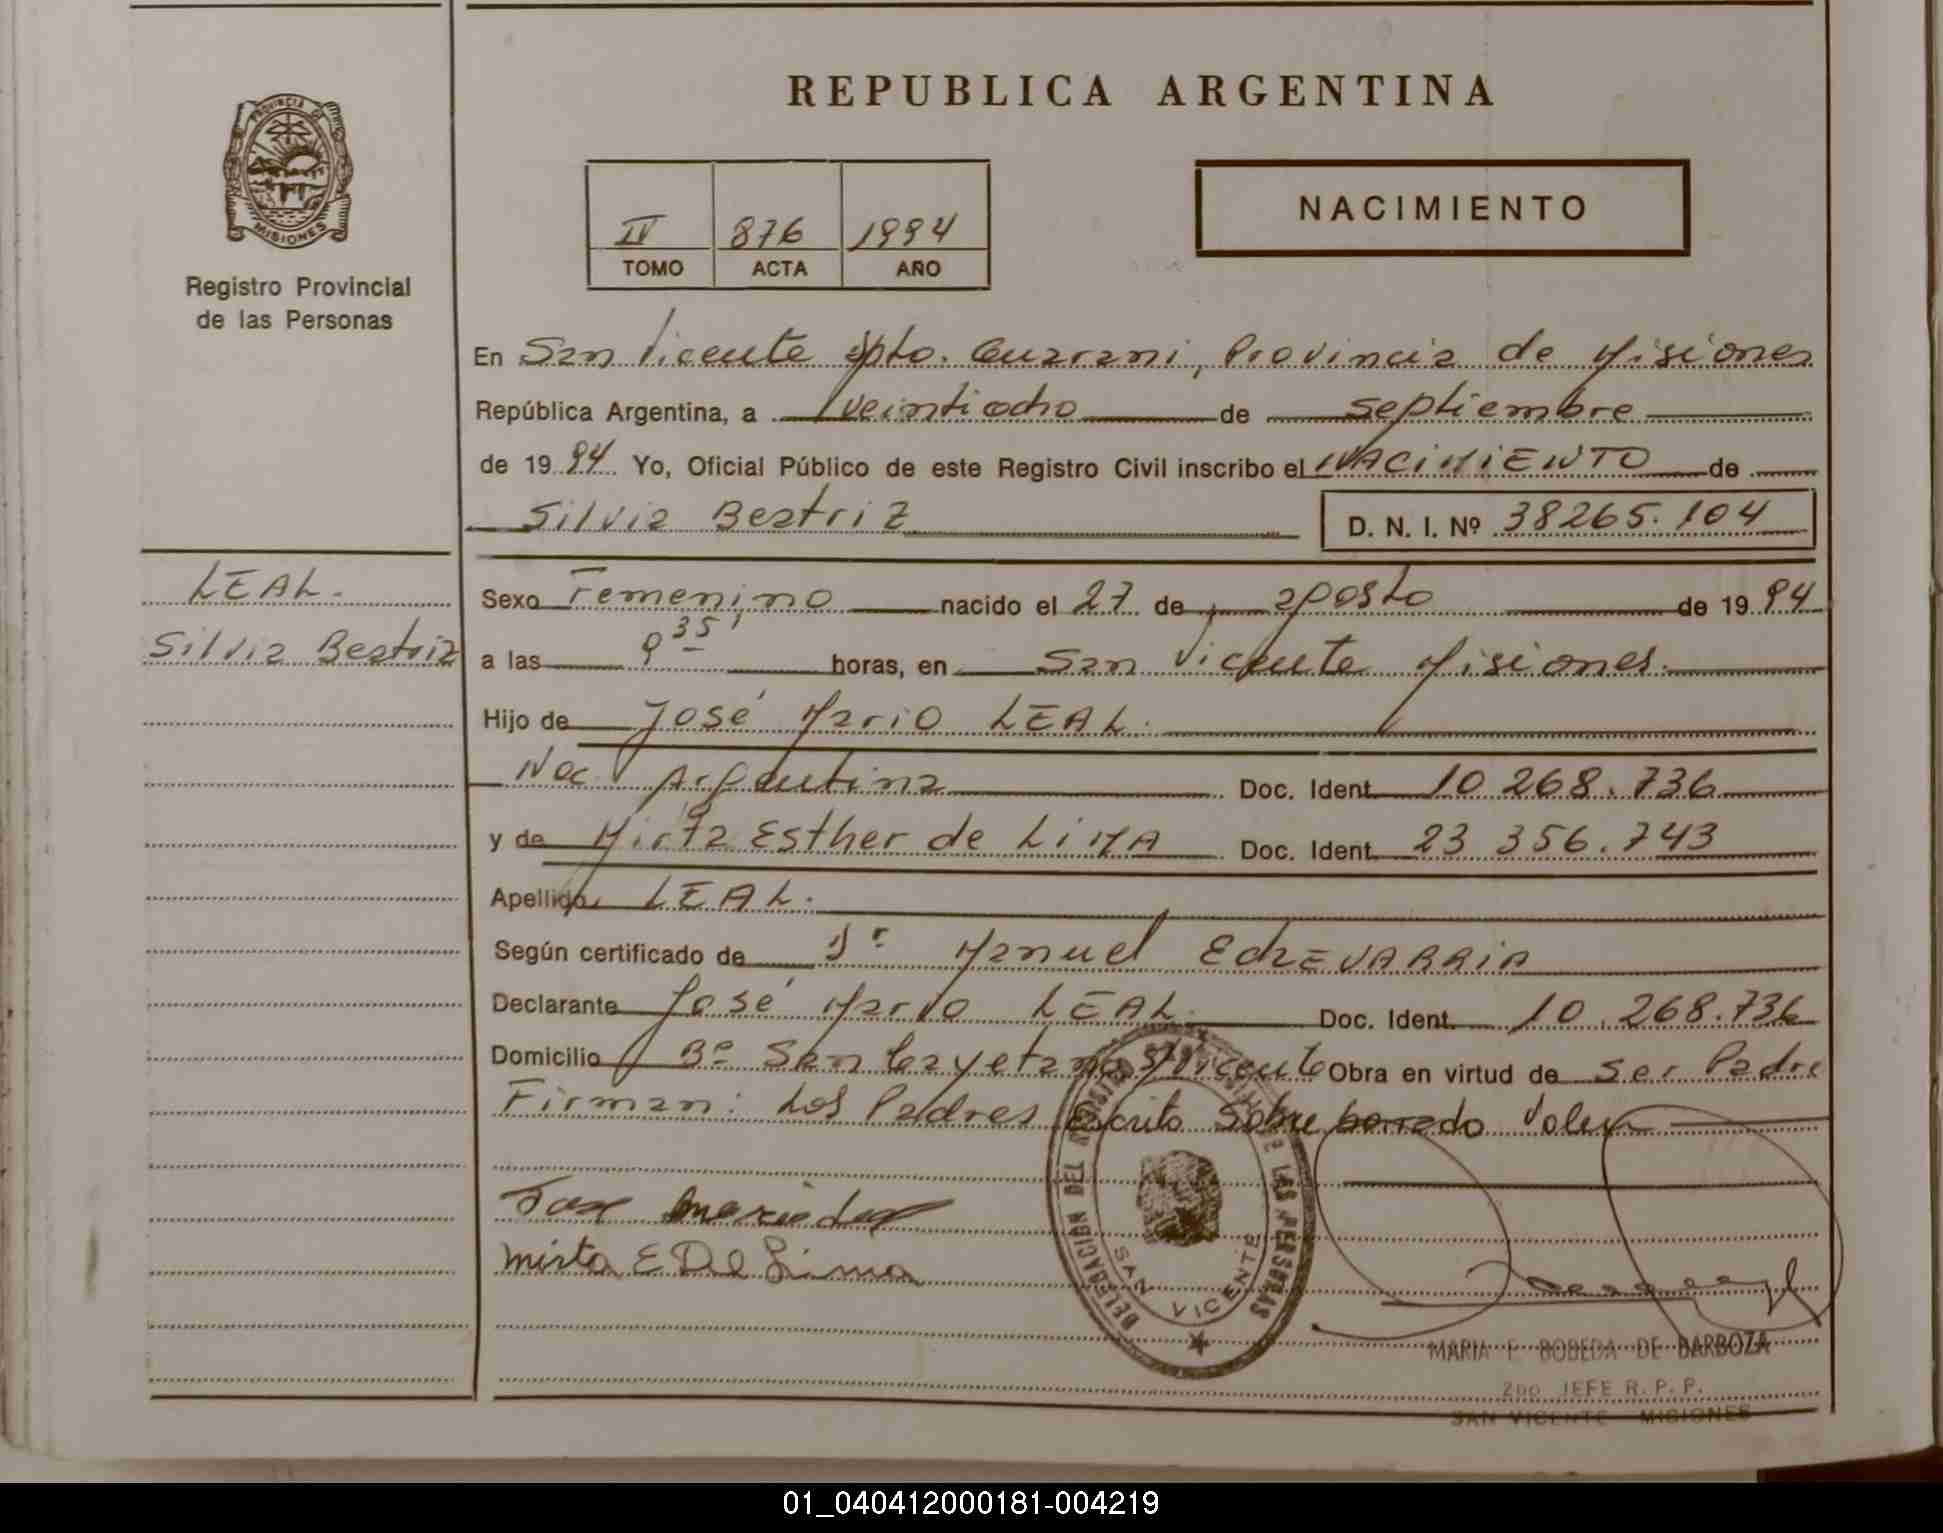 REPUBLICA ARGENTINA
PROVINCIA DE
MISIONES
Registro Provincial
de las Personas
IV 876 1994
TOMO ACTA AÑO
NACIMIENTO
En San Vicente Dpto. Guarani, Provincia de Misiones
República Argentina, a veintiocho de septiembre
de 1994 Yo, Oficial Público de este Registro Civil inscribo el NACIMIENTO de
Silvia Beatriz D. N. I. Nº 38265.104
LEAL.
Silvia Beatriz
Sexo Femenino nacido el 27 de agosto de 1994
a las 9 35 horas, en San Vicente Misiones.
Hijo de José Mario LEAL.
Nac Argentina Doc. Ident. 10 268.736
y de Mirta Esther de LiMA Doc. Ident. 23 356.743
Apellido LEAL.
Según certificado de Dr Manuel EchEVARRiA
Declarante José Mario LEAL. Doc. Ident. 10.268.736
Domicilio Bº San Cayetano S/Vicente Obra en virtud de ser Padre
Firman: Los Padres Escrito sobre borrado Vale
Jose Mario Leal
Mirta E De Lima
DELEGACION DEL REGISTRO PROVINCIAL DE LAS PERSONAS
SAN VICENTE
MARIA F. BOBEDA DE BARBOZA
2DO JEFE R. P. P.
SAN VICENTE MISIONES
01_040412000181-004219